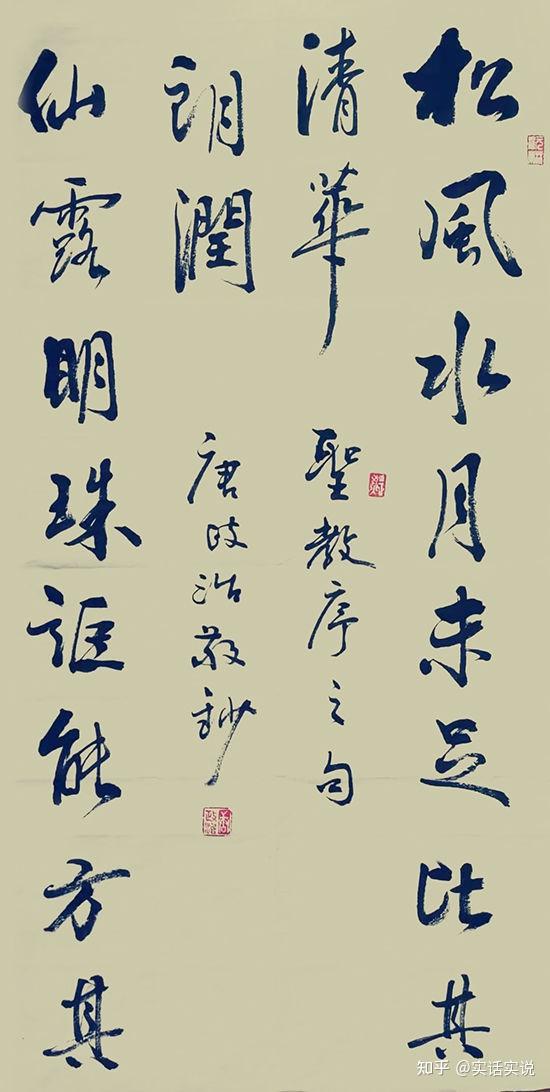 松風水月未足比其
清華
仙露明珠詎能方其
朗潤
聖教序之句
唐歧浩敬鈔
知乎 @实话实说